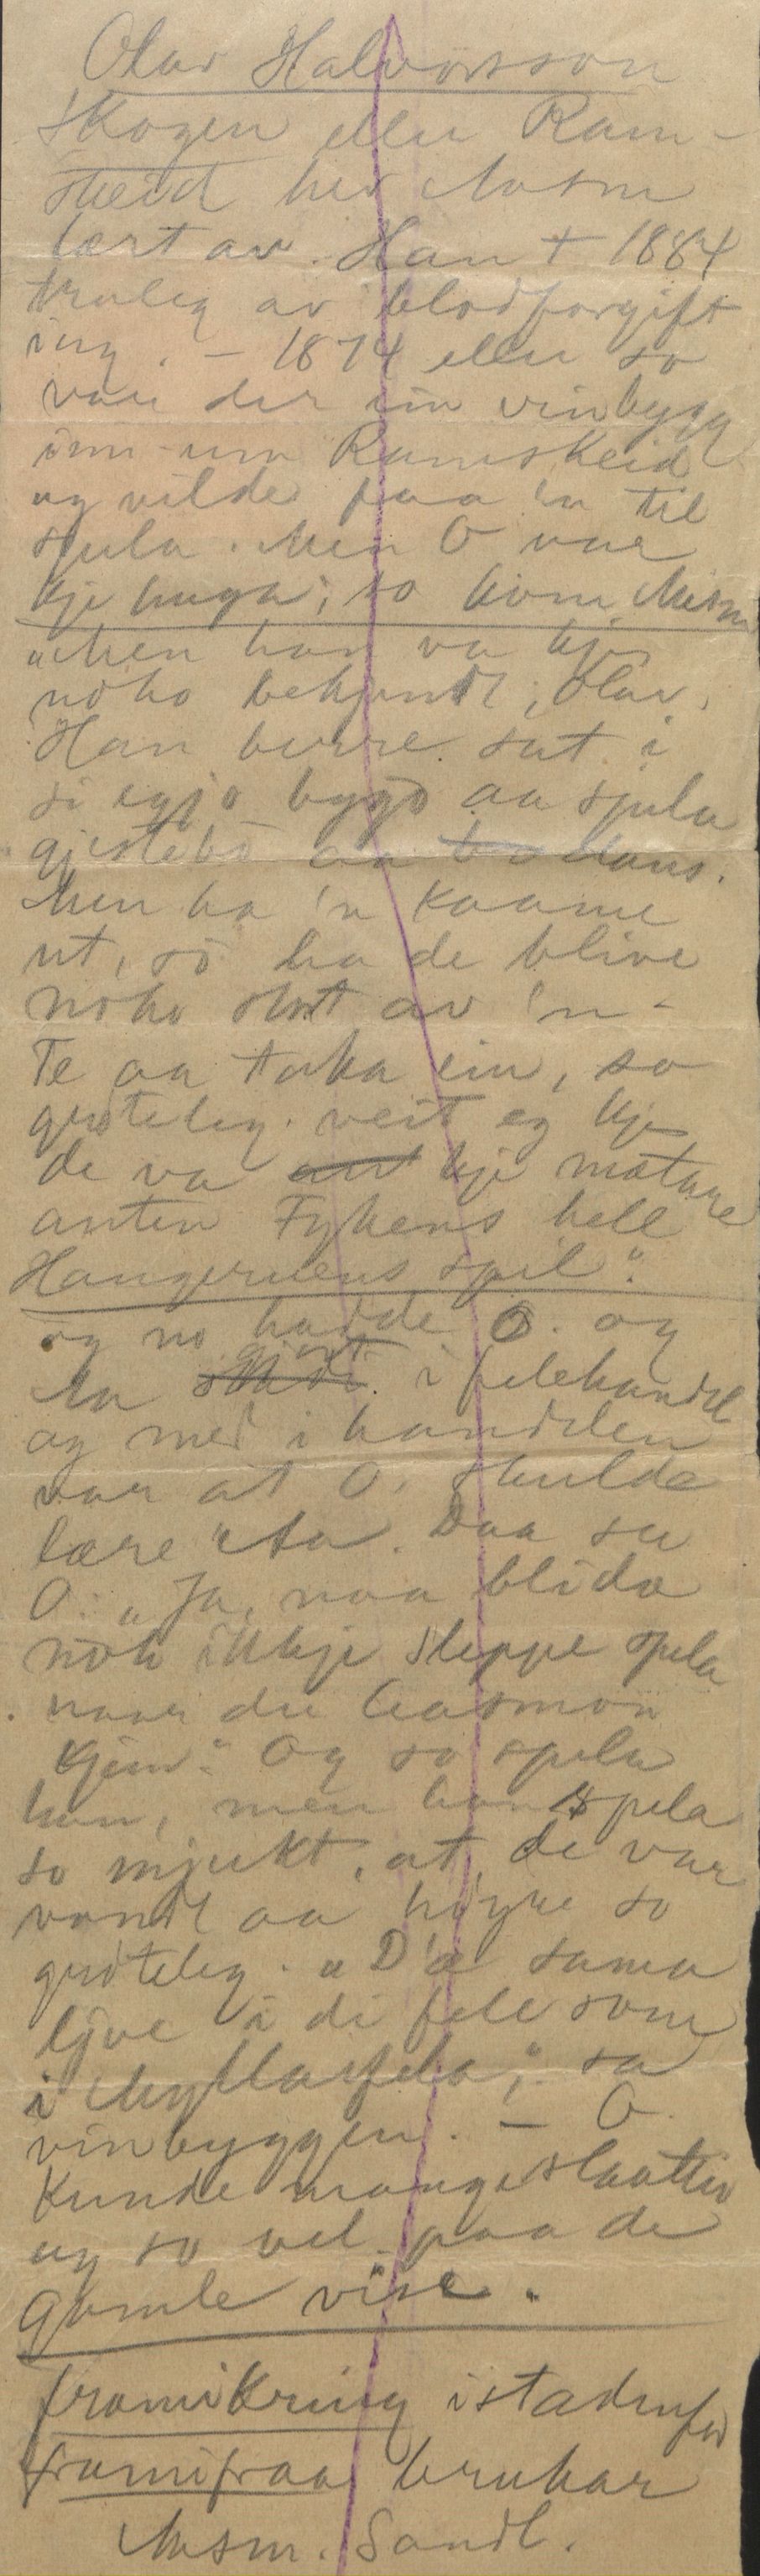 Olav Halvorsson
Skogen eller Ram-
skeid hev Aasm
lært av. Han + 1884
truleg av blodforgift
ing. - 1874 eller so
var der ein vinbygg
inn-um Ramskeid
og vilde faa 'n til
spela. Men O var
kje huga; so kom Aasm
"Men han va kje
noko bekjendt, Olav.
Han berre sat i
si eigjo bygd aa spela
gjestebò aa dans.
Men ha 'n kaame
ut, so ha de blive
noko stort av 'n -
Te aa taka ein, so
grøteleg veit eg kje
de va kje matare
anten Fykens hell
Haugeruens spil".
og no hadde O. og
Aa gjort i felehandel
og med i handelen
var at O. skulde
lære Aa. Daa sa
O: "Ja, naa blide
nok ikkje sleppe spela
naar du Aasmon
kjem". Og so spela
han, men han spela
so mjukt, at de var
vondt aa høyre so
grøteleg. "D'æ sama
ljoe i di fele som
i Myllarfela", sa
vinbyggen. - O.
kunde mange slaattar
og so vel paa de
gamle vise.
framikring istadenfor
framifraa brukar
Aasm. Sandl.